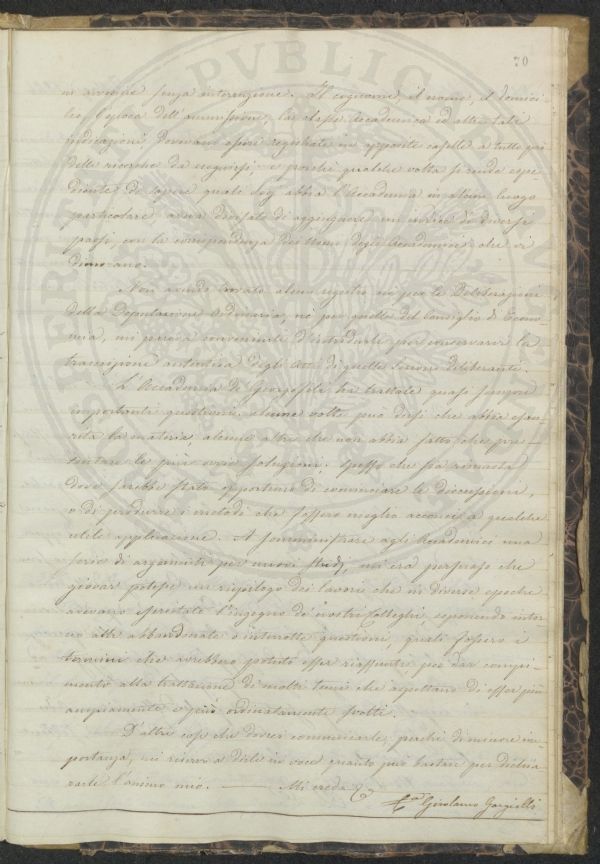 70
in avvenire senza interruzione. Il cognome, il nome, il domici-
lio, l'epoca dell'ammissione, la classe Accademica ed altre tali
indicazioni dovranno esser registrate in apposite caselle a
delle ricerche da eseguirsi: e poichè qualche volta si rende espe-
diente di sapere quali Socj abbia l'Accademia in alcun luogo
particolare, avea divisato di aggiungere un indice di diversi
paesi, con la corrispondenza dei nomi degli Accademici che vi
dimorano.
Non avendo trovato alcun registro nè per le Deliberazioni
della Deputazione Ordinaria, nè per quelle del Consiglio d'Econo-
mia, mi pareva conveniente d'introdurli per conservarvi la
trascrizione autentica degli Atti di quelle Sezioni deliberanti.
L'Accademia de' Georgofili ha trattate quasi sempre
importanti questioni: alcune volte può dirsi che abbia esau-
rita la materia, alcune altre che non abbia fatto che pre-
sentare le più ovvie soluzioni. Spesso che sia rimasta
dove sarebbe stato opportuno di cominciare le discussioni,
o di produrre i metodi che fossero meglio acconci a qualche
utile applicazione. A somministrare agli Accademici una
serie di argomenti per nuovi studj, mi era persuaso che
giovar potesse un riepilogo dei lavori che in diverse epoche
avevano esercitato l'ingegno de' nostri Colleghi, esponendo intor-
no alle abbandonate o interrotte questioni, quali fossero i
termini che avrebbero potuto esser riassunti per dar compi-
mento alla trattazione di molti temi che aspettano di esser più
ampiamente e più ordinatamente svolti.
D'altre cose che dovrei comunicarle, perchè di minore im-
portanza, mi riservo a dirle in voce quanto può bastare per dichia-
rarle l'animo mio. Mi creda
Girolamo Gargiolli